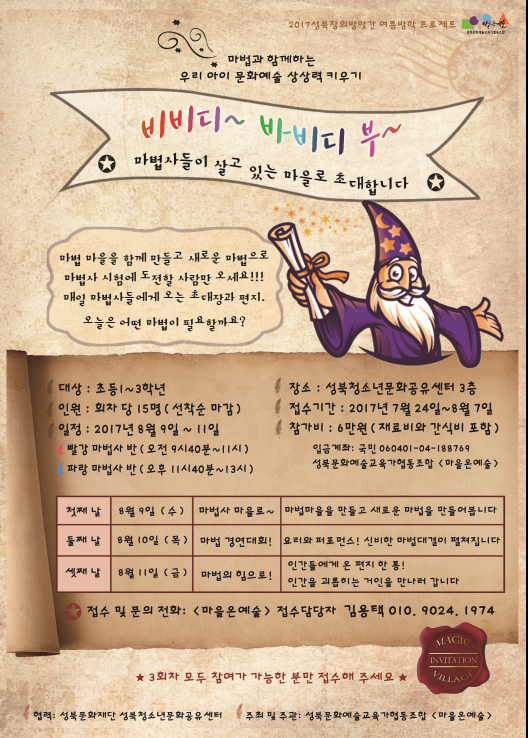 2017성북창의방앗간 여름방학 프로젝트
마법과 함께하는
우리 아이 문화예술 상상력 키우기
비비디~ 바비디 부~
마법사들이 살고 있는 마을로 초대합니다
마법 마을을 함께 만들고 새로운 마법으로
마법사 시험에 도전할 사람만 오세요!!!
매일 마법사들에게 오는 초대장과 편지.
오늘은 어떤 마법이 필요할까요?
대상 : 초등1~3학년
인원 : 회차 당 15명 (선착순 마감)
일정 : 2017년 8월 9일 ~ 11일
빨강 마법사 반 (오전 9시40분~11시)
파랑 마법사 반 (오후 11시40분~13시)
장소 : 성북청소년문화공유센터 3층
접수기간 : 2017년 7월 24일~8월 7일
참가비 : 6만원 (재료비와 간식비 포함)
입금계좌: 국민 060401-04-188769
성북문화예술교육가협동조합 <마을온예술>
첫째 날 8월 9일 (수) 마법사 마을로~ 마법마을을 만들고 새로운 마법을 만들어봅니다
둘째 날 8월 10일 (목) 마법 경연대회! 요리와 퍼포먼스! 신비한 마법대결이 펼쳐집니다
셋째 날 8월 11일 (금) 마법의 힘으로! 인간들에게 온 편지 한 통!
인간을 괴롭히는 거인을 만나러 갑니다
접수 및 문의 전화: <마을온예술> 접수담당자 김용택 010. 9024. 1974
MAGIC
INVITATION
VILLAGE
★ 3회차 모두 참여가 가능한 분만 접수해 주세요 ★
협력: 성북문화재단 성북청소년문화공유센터
주최 및 주관: 성북문화예술교육가협동조합 <마을온예술>